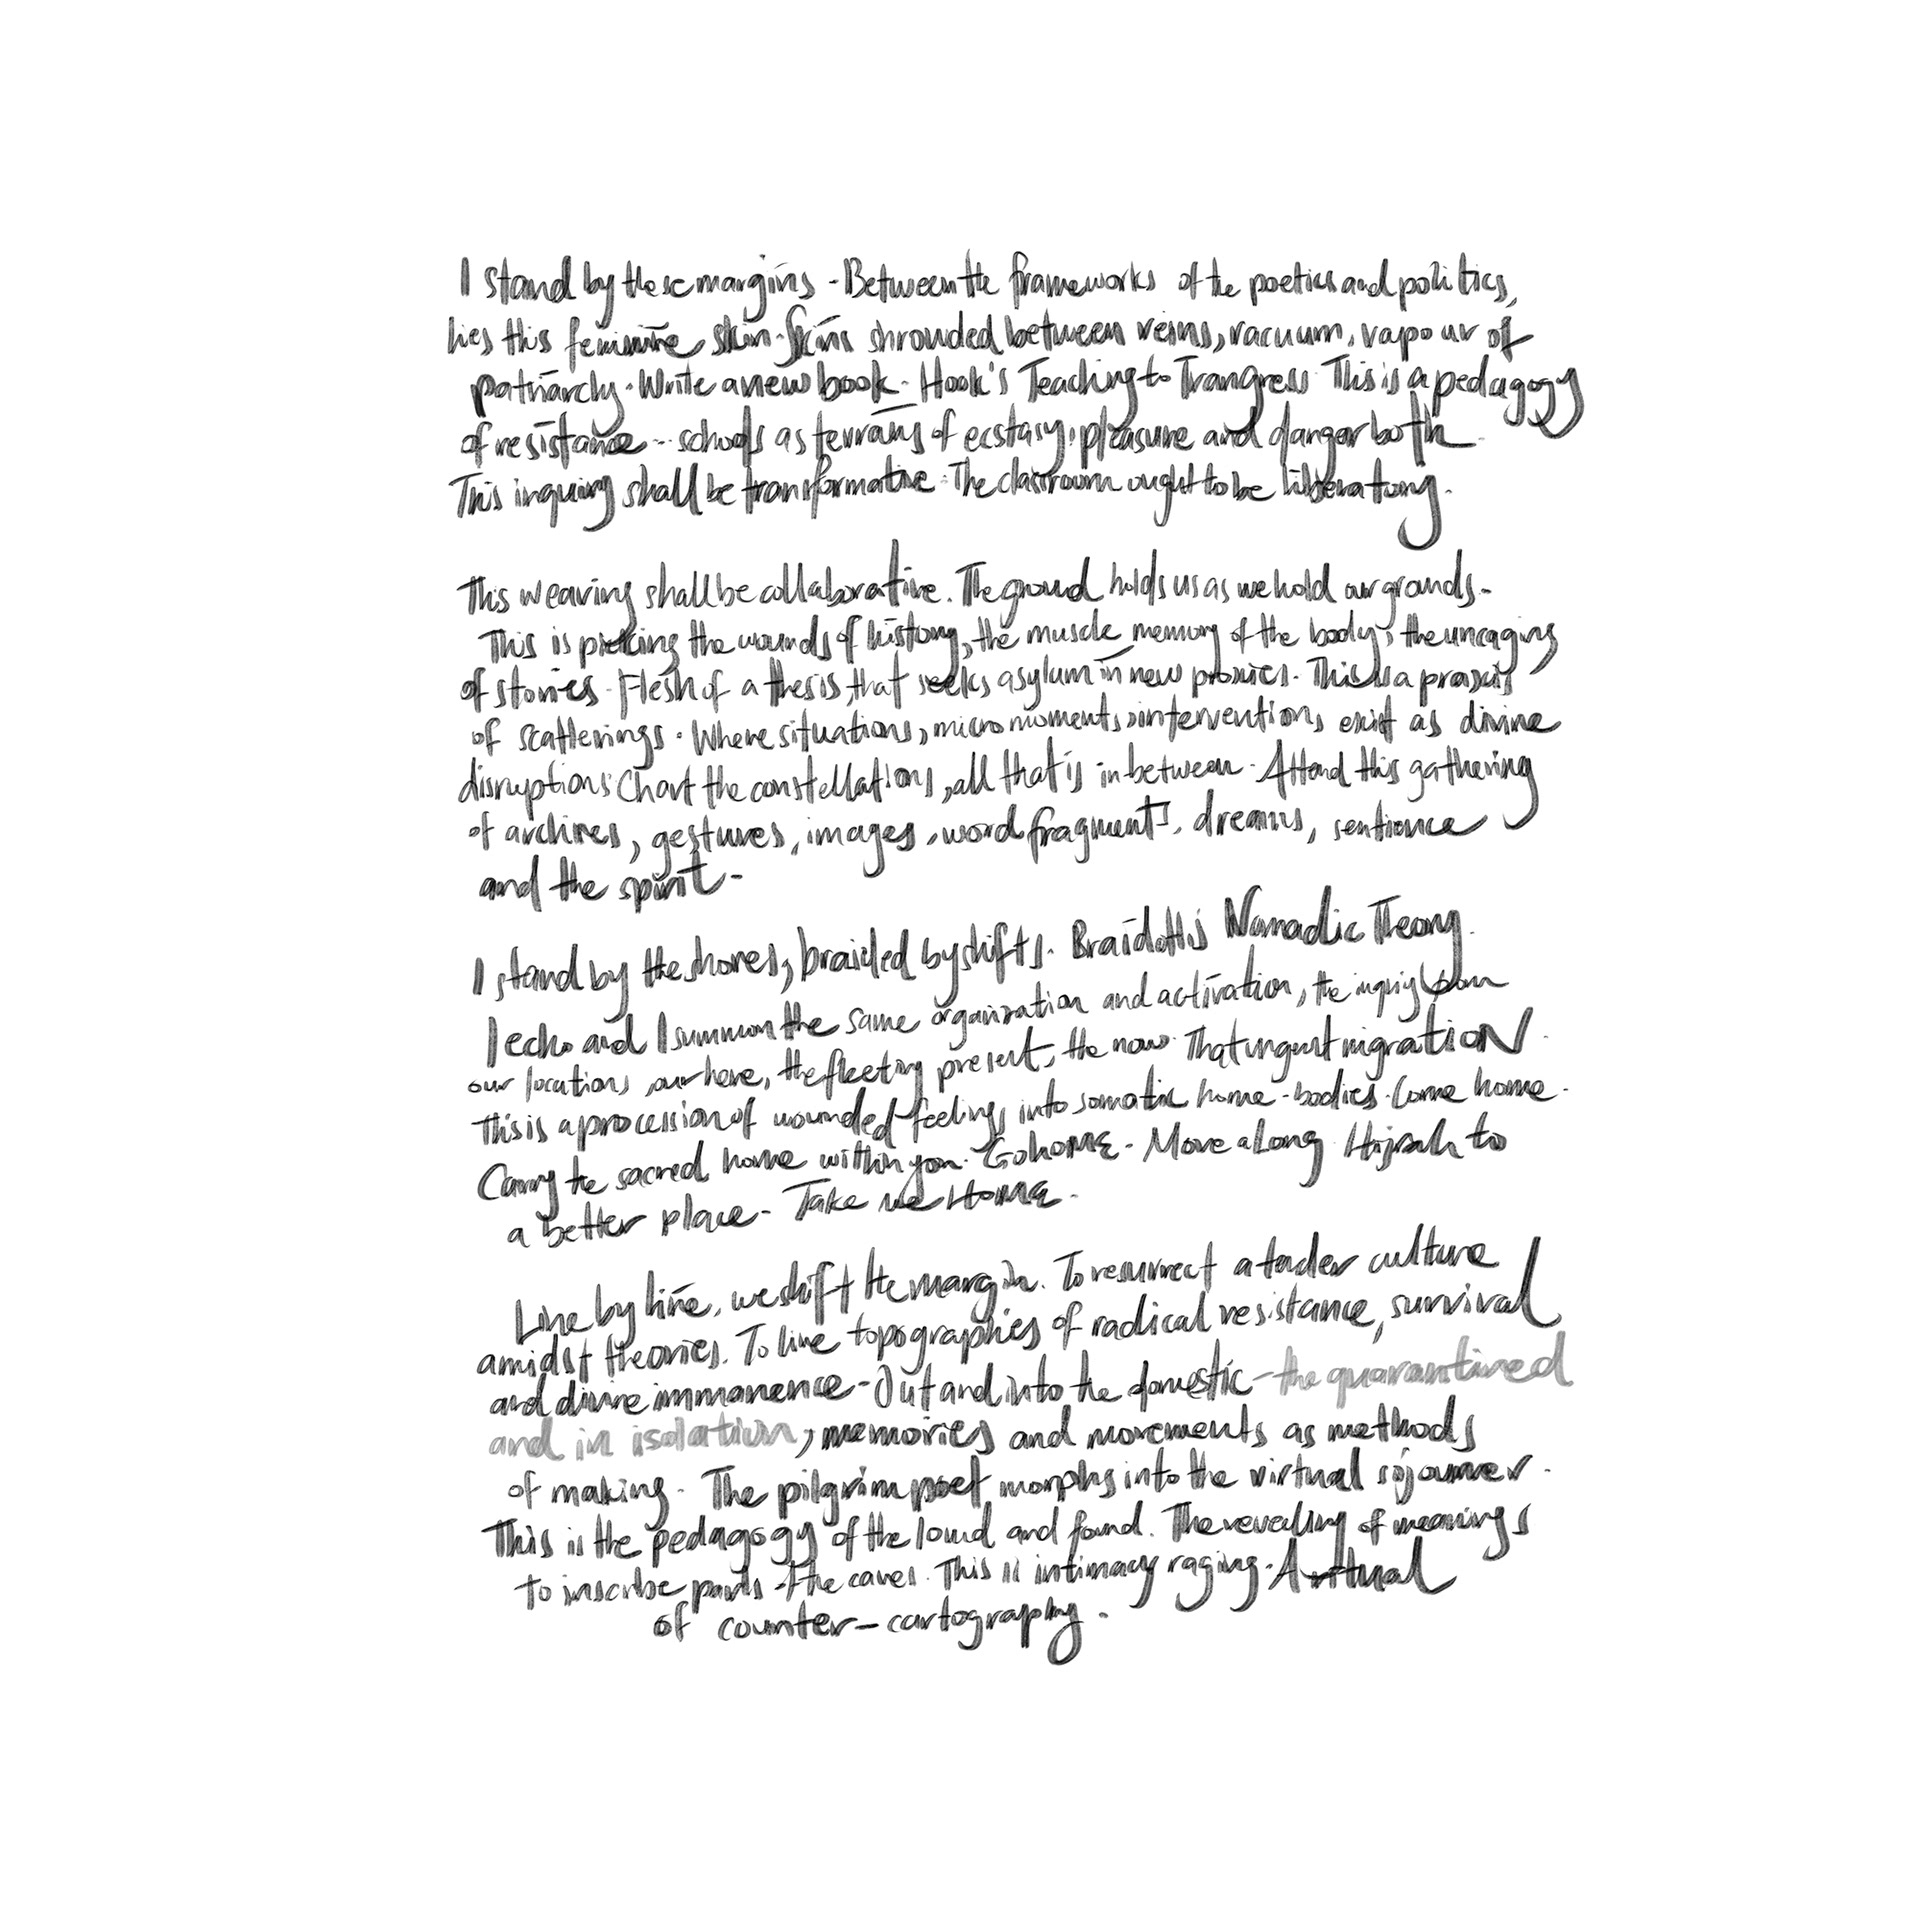 I stand by these margins. Between the frameworks of the poetics and politics,
lies this feminine skin. Skins shrouded between veins, vacuum, vapour of
patriarchy. Write a new book. Hook's Teaching to Trangress. This is a pedagogy
of resistance.. schools as terrains of ecstasy, pleasure and danger both.
This inquiry shall be transformative. The classroom ought to be liberatory.
This weaving shall be collaborative. The ground holds us as we hold our grounds.
This is pricking the wounds of history, the muscle memory of the body, the uncaging
of stories. Flesh of a thesis, that seeks asylum in new proxies. This is a praxis
of scatterings. Where situations, micro moments, interventions exist as divine
disruptions. Chart the constellations, all that is in between. Attend this gathering
of archives, gestures, images, word fragments, dreams, sentience
and the spirit.
I stand by the shores, braided by shifts. Braidotti's Nomadic Theory.
I echo and I summon the same organization and activation, the inquiry from
our locations, our here, the fleeting present, the now. That urgent migration.
This is a procession of wounded feelings into somatic home-bodies. Come home.
Carry the sacred home within you. Go home. Move along. Hijrah to
a better place. Take me Home.
Line by line, we shift the margin. To resurrect a tender culture
amidst theories. To live topographies of radical resistance, survival
and divine immanence. Out and into the domestic - the quarantined
and in isolation, memories and movements as methods
of making. The pilgrim poet morphs into the virtual sojourner.
This is the pedagogy of the loud and found. The revealing of meanings
to inscribe parts of the caves. This is intimacy raging. A ritual
of counter-cartography.